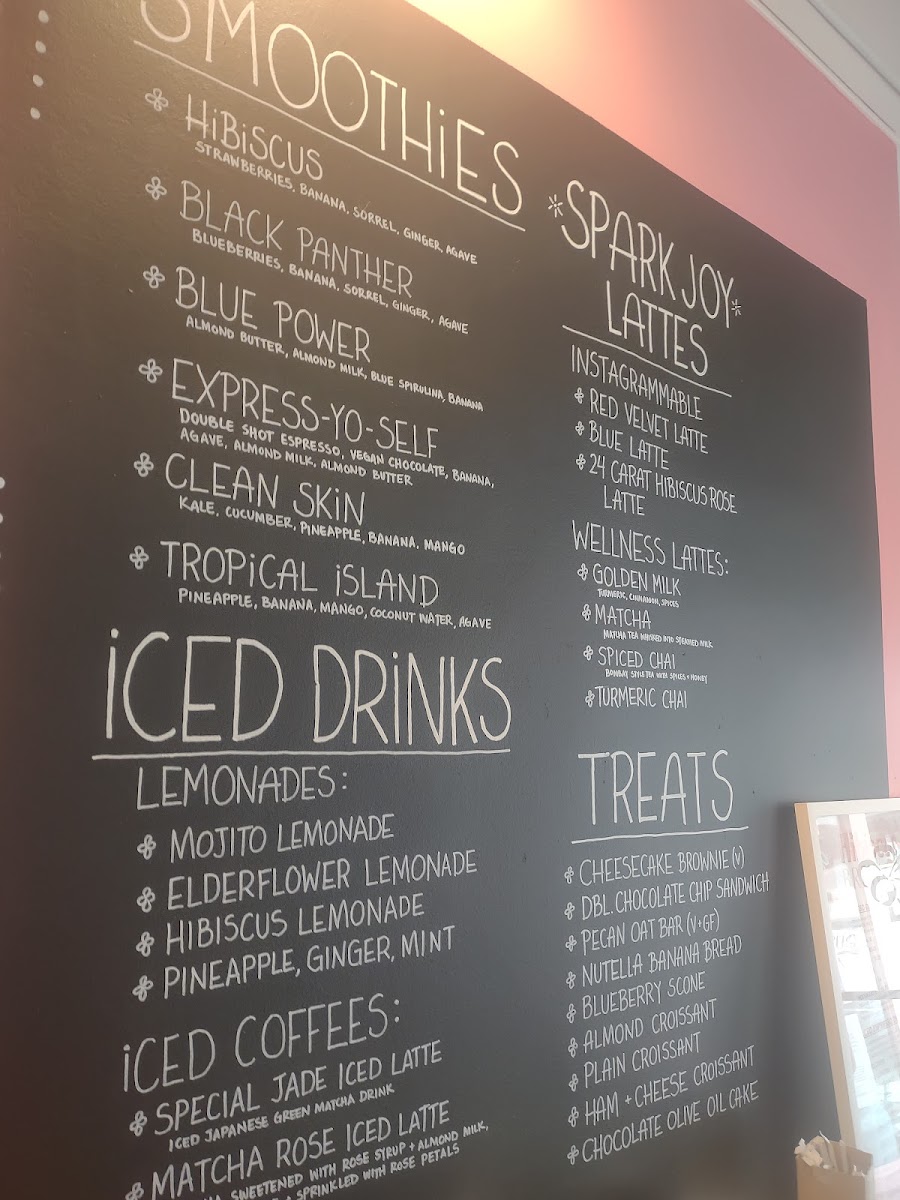 SMOOTHiES
HiBiSCUS
STRAWBERRIES, BANANA, SORREL, GINGER, AGAVE
BLACK PANTHER
BLUEBERRIES, BANANA, SORREL, GINGER, AGAVE
BLUE POWER
ALMOND BUTTER, ALMOND MILK, BLUE SPIRULINA, BANANA
EXPRESS-YO-SELF
DOUBLE SHOT ESPRESSO, VEGAN CHOCOLATE, BANANA,
AGAVE, ALMOND MILK, ALMOND BUTTER
CLEAN SKiN
KALE, CUCUMBER, PINEAPPLE, BANANA, MANGO
TROPiCAL iSLAND
PINEAPPLE, BANANA, MANGO, COCONUT WATER, AGAVE
iCED DRiNKS
LEMONADES:
MOJITO LEMONADE
ELDERFLOWER LEMONADE
HIBISCUS LEMONADE
PINEAPPLE, GINGER, MINT
iCED COFFEES:
SPECIAL JADE ICED LATTE
ICED JAPANESE GREEN MATCHA DRINK
MATCHA ROSE ICED LATTE
SWEETENED WITH ROSE SYRUP + ALMOND MILK,
+ SPRINKLED WITH ROSE PETALS
*SPARK JOY*
LATTES
INSTAGRAMMABLE
RED VELVET LATTE
BLUE LATTE
24 CARAT HIBISCUS ROSE
LATTE
WELLNESS LATTES:
GOLDEN MILK
TURMERIC, CINNAMON, SPICES
MATCHA
MATCHA TEA WHISKED INTO STEAMED MILK
SPICED CHAI
BOMBAY STYLE TEA WITH SPICES + HONEY
TURMERIC CHAI
TREATS
CHEESECAKE BROWNIE (V)
DBL. CHOCOLATE CHIP SANDWICH
PECAN OAT BAR (V+GF)
NUTELLA BANANA BREAD
BLUEBERRY SCONE
ALMOND CROISSANT
PLAIN CROISSANT
HAM + CHEESE CROISSANT
CHOCOLATE OLIVE OIL CAKE